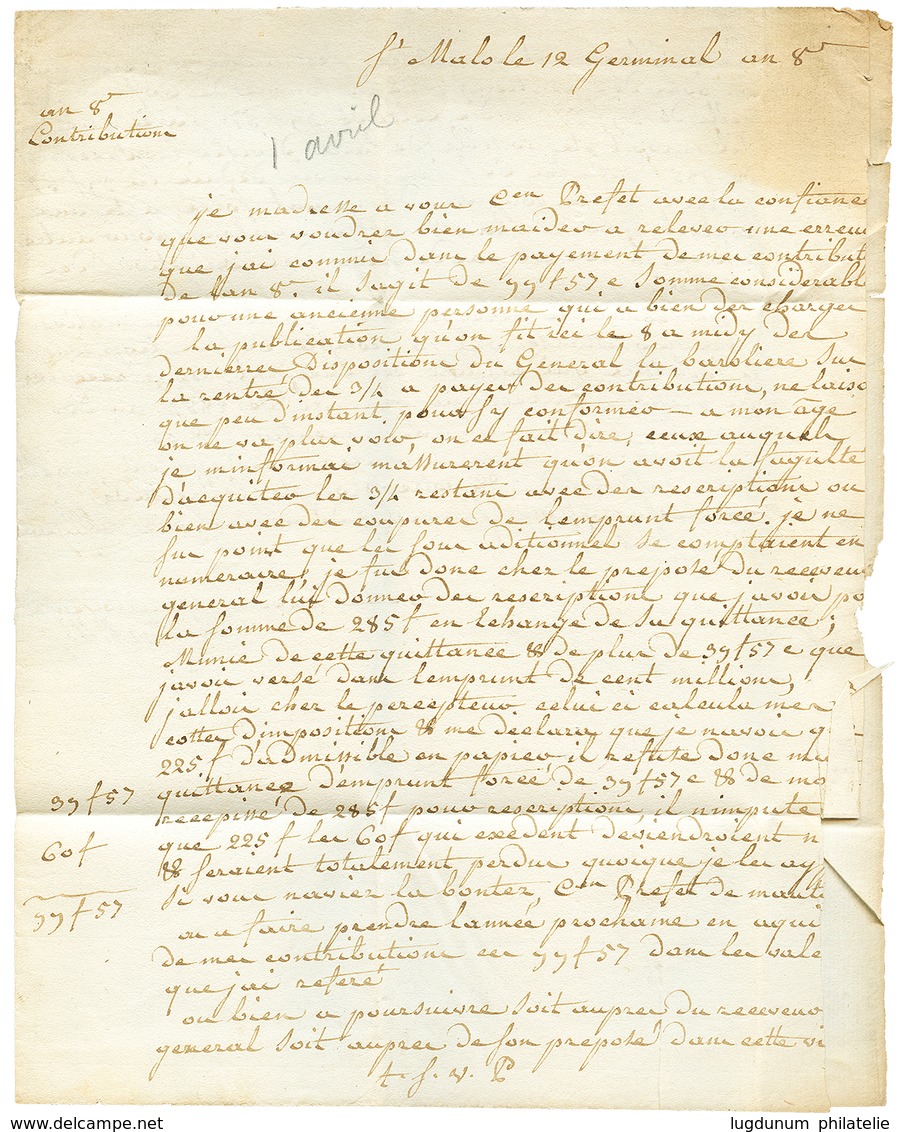 St Malo le 12 Germinal an 8e
an 8e
Contributions
1 avril
je madresse a vous Cen Prefet avec la confiance
que vous voudrez bien maider a relever une erreur
que jai commis dans le payement de mes contribut
de lan 8e. il sagit de 99f57c somme considerabl
pour une ancienne personne qui a bien des charges
la publication quon fit ici le 8 a midy des
dernieres Dispositions du General la baroliere sur
la rentré des 3/4 a payer des contributions, ne laiso
que peu dinstant pour sy conformer — a mon âge
on ne va plus voir, on se fait dire; ceux auquels
je minformai massurerent quon avoit la faqulté
dacquiter les 3/4 restans avec des rescriptions ou
bien avec des coupures de lemprunt forcé. je ne
sus point que les sous aditionnel se comptaient en
numeraire, je fus donc chez le preposé du receveur
general lui donner des rescriptions que javois po
la somme de 285f en Echange de sa quittance;
Munie de cette quittance & de plus de 39f57c que
javois versé dans lemprunt de cent millions,
jallois chez le percepteur, celui ci calcula mes
cottes dimpositions & me declara que je navois q
225f dadmissible en papier, il refuse donc ma
quittance demprunt forcé de 39f57c & de mo
recepissé de 285f pour rescriptions, il nimpute
que 225f les 60f qui exedent deviendroient n
& seraient totalement perdus quoique je les ay
si vous naviez la bontez, Cen Prefet de mauto
ou a faire prendre lannée prochaine en aqui
de mes contributions ces 99f57 dans les vale
que jai referé
ou bien a poursuivre soit aupres du receveur
general soit aupres de son preposé dans cette vi
t. s. v. P
39f57
60f
99f57
www.delcampe.net
lugdunum philatelie